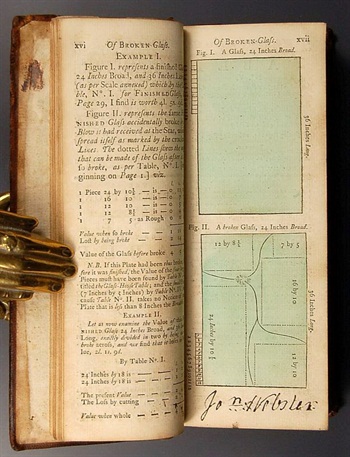 xvi Of BROKEN-Glass.
EXAMPLE I.
Figure I. represents a finished Glass
24 Inches Broad, and 36 Inches
(as per Scale annexed) which by the
ble, N°. I. for FINISHED Glass
Page 29, I find is worth 4l.
Figure II. represents the same
NISHED Glass accidentally broke
Blow it had received at the
spread itself as marked by the
Lines. The dotted Lines shew the
that can be made of the Glass after
so broke, as per Table, N°. I.
ginning on Page 1.]
1 Piece 24 by 10½ — is
1 16 10 — is
1 12 10 — is
1 12 8½ — is
1 7 5 as Rough
Value when so broke
Lost by being broke
Value of the Glass before broke
N.B. If this Plate had been
fore it was finished, the Value of the
Pieces must have been found by
titled the Glass-House Table; and the
(7 Inches by 5 Inches) by Table
cause Table N°. II. takes no Notice
Plate that is less than 8 Inches the
EXAMPLE II.
Let us now examine the Value of
NISHED Glass 24 Inches Broad, and
Long, exactly divided in two by being
broke asunder, and we find that
lor, 2l. 1s. 9d.
By Table N°. I.
24 Inches by 18 is
24 Inches by 18 is
The present Value
The Loss by cutting
Value when whole
Of BROKEN-Glass. xvii
Fig. I. A Glass, 24 Inches Broad.
36 Inches Long.
Fig. II. A broken Glass, 24 Inches Broad.
12 by 8½
7 by 5
16 by 10
24 Inches by 10½
12 by 10
36 Inches Long.
Jon. Webster